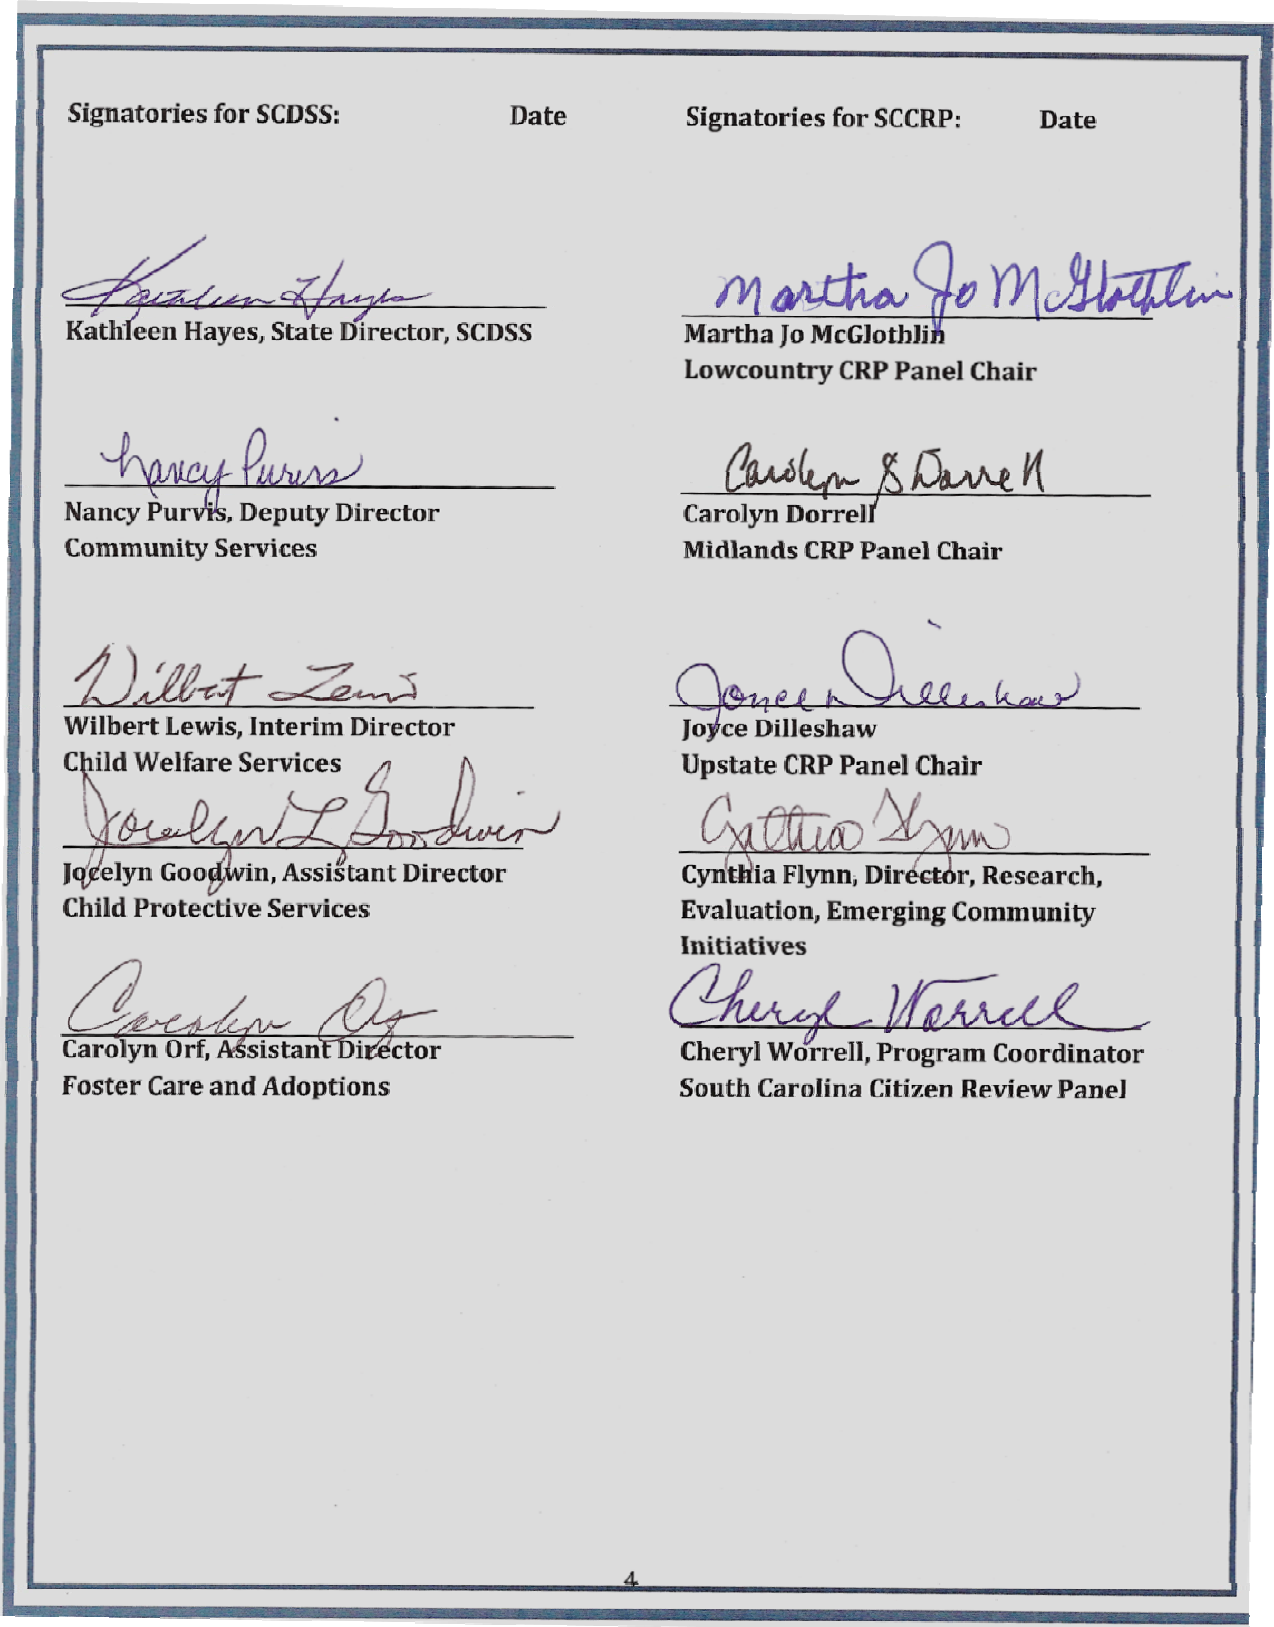 Signatories for SCDSS: Date
Kathleen Hayes
Kathleen Hayes, State Director, SCDSS
Nancy Purvis
Nancy Purvis, Deputy Director
Community Services
Wilbert Lewis
Wilbert Lewis, Interim Director
Child Welfare Services
Jocelyn L Goodwin
Jocelyn Goodwin, Assistant Director
Child Protective Services
Carolyn Orf
Carolyn Orf, Assistant Director
Foster Care and Adoptions
Signatories for SCCRP: Date
Martha Jo McGlothlin
Martha Jo McGlothlin
Lowcountry CRP Panel Chair
Carolyn S Dorrell
Carolyn Dorrell
Midlands CRP Panel Chair
Joyce Dilleshaw
Joyce Dilleshaw
Upstate CRP Panel Chair
Cynthia Flynn
Cynthia Flynn, Director, Research,
Evaluation, Emerging Community
Initiatives
Cheryl Worrell
Cheryl Worrell, Program Coordinator
South Carolina Citizen Review Panel
4